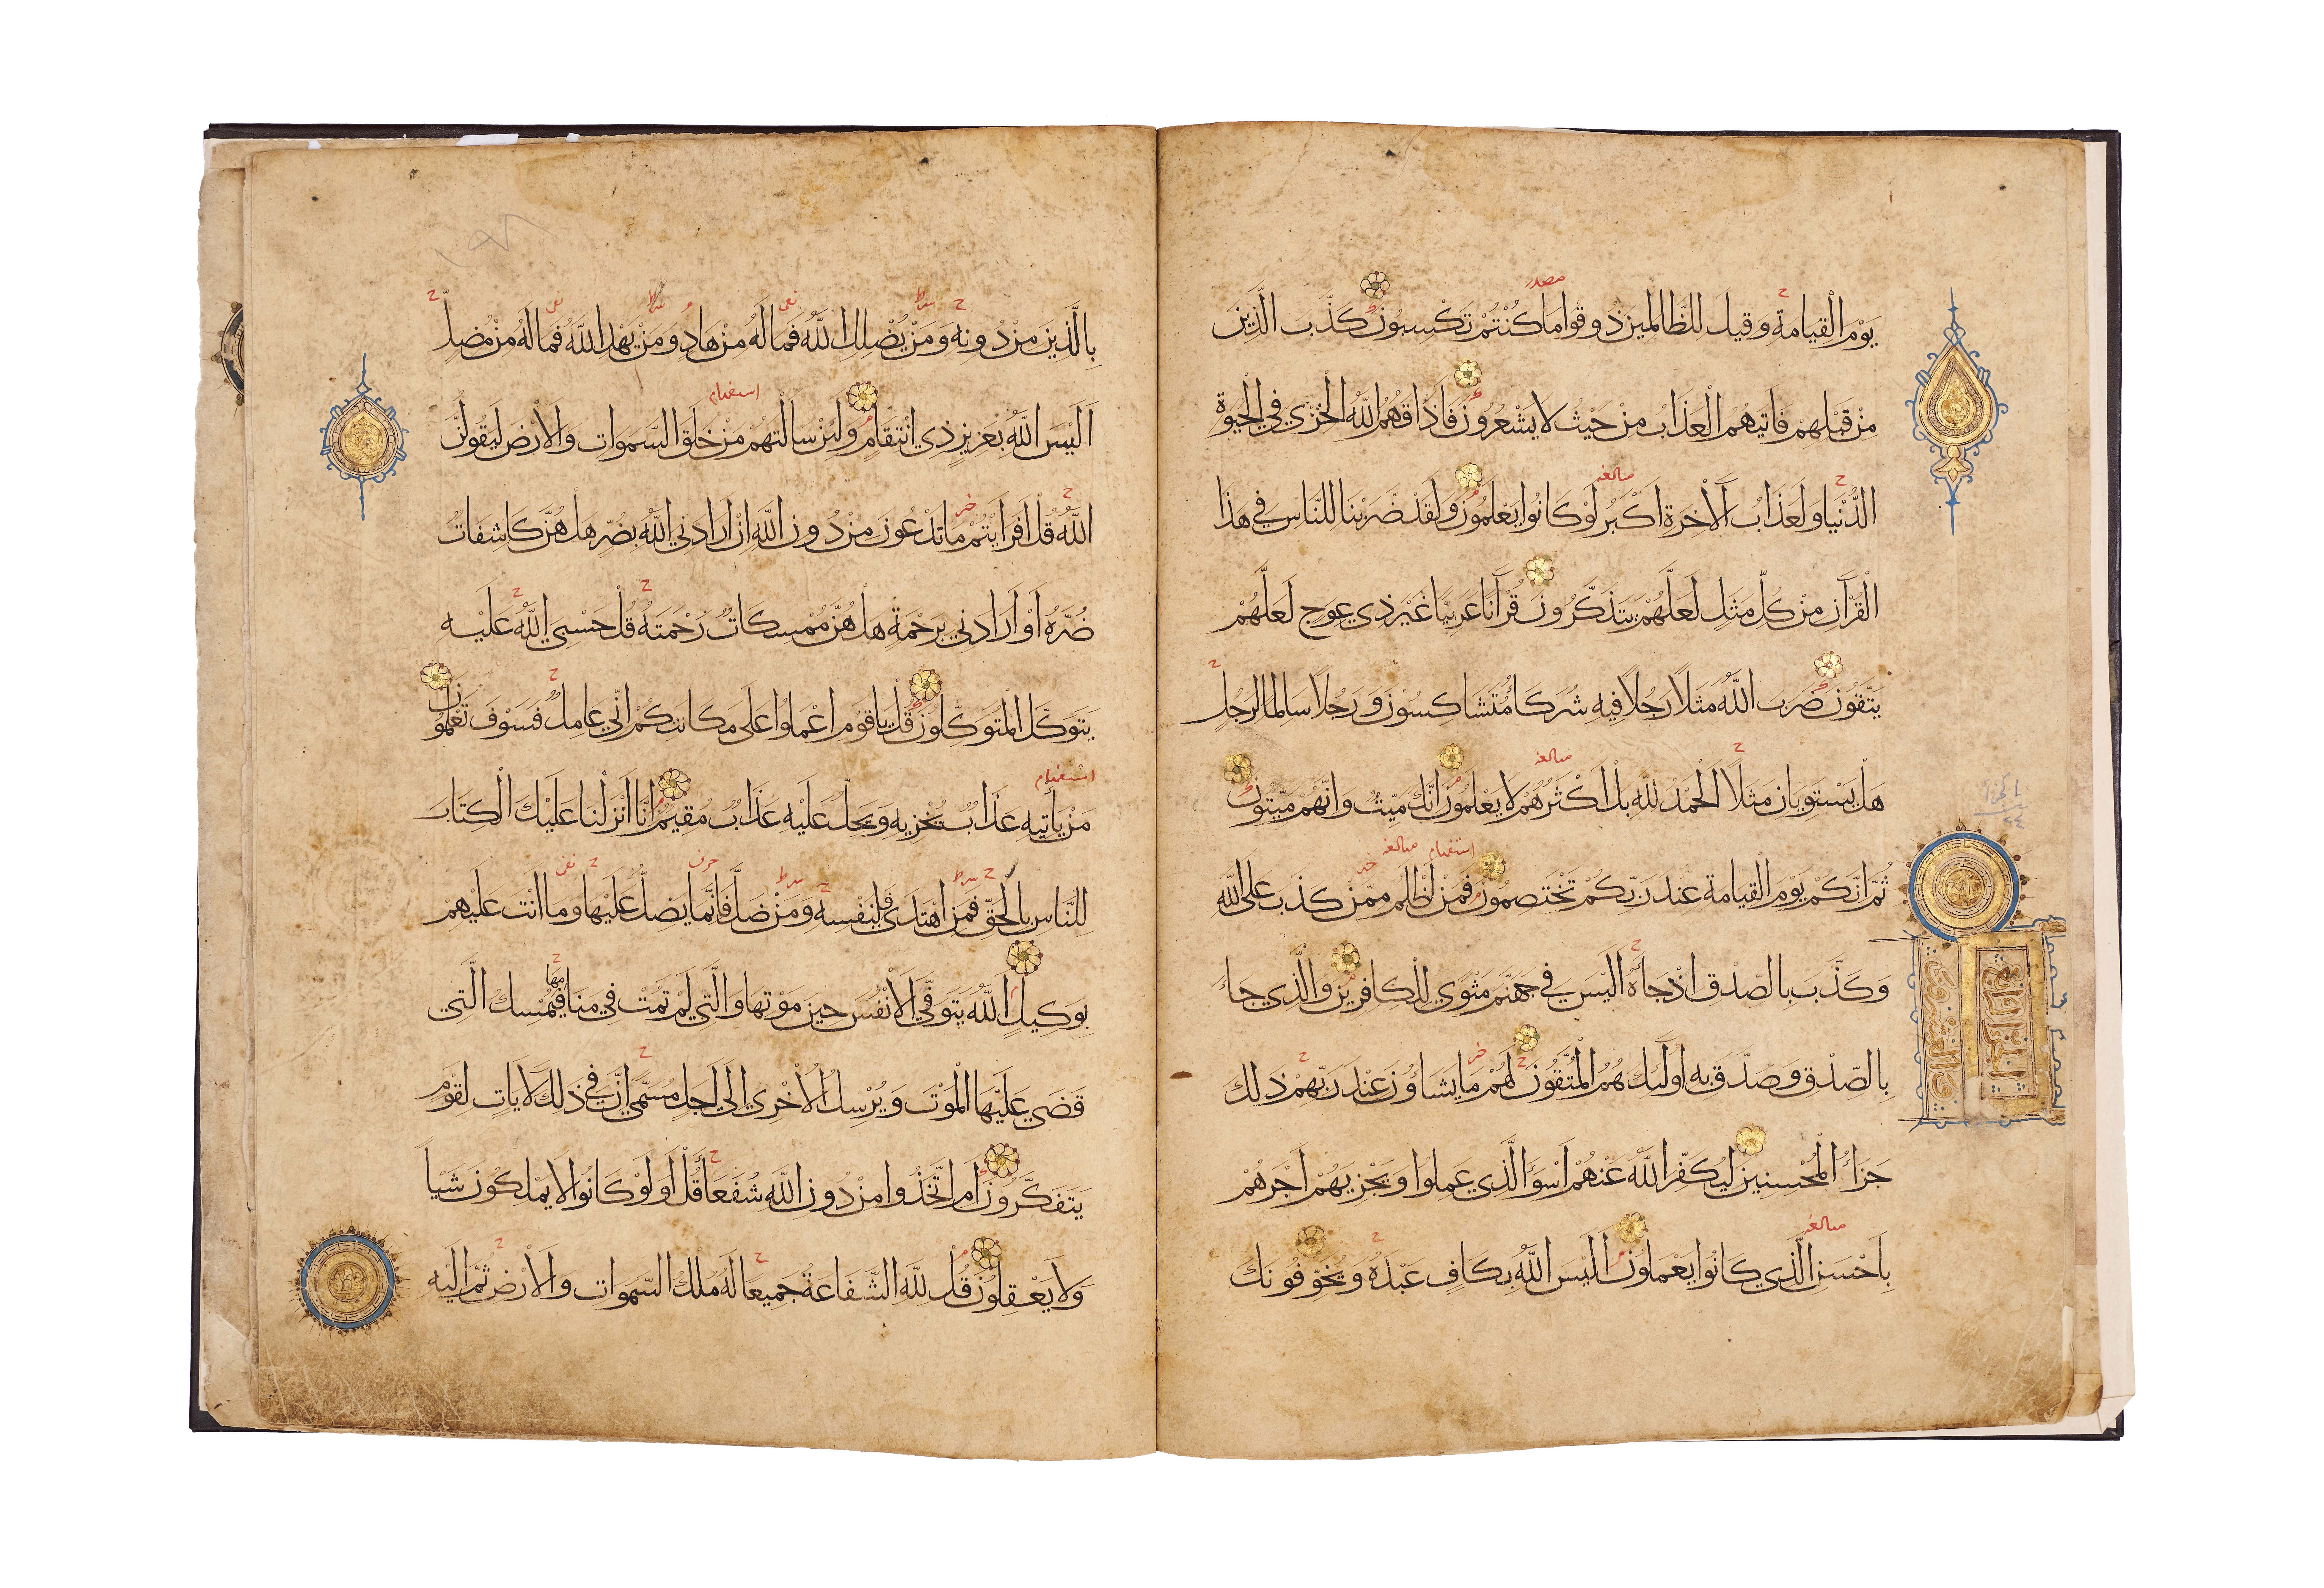 يَوْمَ الْقِيَامَةِ وَقِيلَ لِلظَّالِمِينَ ذُوقُوا مَا كُنْتُمْ تَكْسِبُونَ كَذَّبَ الَّذِينَ
مِنْ قَبْلِهِمْ فَاَتٰيهُمُ الْعَذَابُ مِنْ حَيْثُ لَا يَشْعُرُونَ فَاَذَاقَهُمُ اللّٰهُ الْخِزْيَ فِي الْحَيٰوةِ
الدُّنْيَا وَلَعَذَابُ الْاٰخِرَةِ اَكْبَرُ لَوْ كَانُوا يَعْلَمُونَ وَلَقَدْ ضَرَبْنَا لِلنَّاسِ فِي هٰذَا
الْقُرْآنِ مِنْ كُلِّ مَثَلٍ لَعَلَّهُمْ يَتَذَكَّرُونَ قُرْآنًا عَرَبِيًّا غَيْرَ ذِي عِوَجٍ لَعَلَّهُمْ
يَتَّقُونَ ضَرَبَ اللّٰهُ مَثَلًا رَجُلًا فِيهِ شُرَكَاءُ مُتَشَاكِسُونَ وَرَجُلًا سَالِمًا لِرَجُلٍ
هَلْ يَسْتَوِيَانِ مَثَلًا اَلْحَمْدُ لِلّٰهِ بَلْ اَكْثَرُهُمْ لَا يَعْلَمُونَ اِنَّكَ مَيِّتٌ وَاِنَّهُمْ مَيِّتُونَ
ثُمَّ اِنَّكُمْ يَوْمَ الْقِيَامَةِ عِنْدَ رَبِّكُمْ تَخْتَصِمُونَ فَمَنْ اَظْلَمُ مِمَّنْ كَذَبَ عَلَى اللّٰهِ
وَكَذَّبَ بِالصِّدْقِ اِذْ جَاءَهُ اَلَيْسَ فِي جَهَنَّمَ مَثْوًى لِلْكَافِرِينَ وَالَّذِي جَاءَ
بِالصِّدْقِ وَصَدَّقَ بِهِ اُولٰئِكَ هُمُ الْمُتَّقُونَ لَهُمْ مَا يَشَاؤُنَ عِنْدَ رَبِّهِمْ ذٰلِكَ
جَزَاءُ الْمُحْسِنِينَ لِيُكَفِّرَ اللّٰهُ عَنْهُمْ اَسْوَاَ الَّذِي عَمِلُوا وَيَجْزِيَهُمْ اَجْرَهُمْ
بِاَحْسَنِ الَّذِي كَانُوا يَعْمَلُونَ اَلَيْسَ اللّٰهُ بِكَافٍ عَبْدَهُ وَيُخَوِّفُونَكَ
الجزء الرابع
والعشرون
بِالَّذِينَ مِنْ دُونِهِ وَمَنْ يُضْلِلِ اللّٰهُ فَمَا لَهُ مِنْ هَادٍ وَمَنْ يَهْدِ اللّٰهُ فَمَا لَهُ مِنْ مُضِلٍّ
اَلَيْسَ اللّٰهُ بِعَزِيزٍ ذِي انْتِقَامٍ وَلَئِنْ سَاَلْتَهُمْ مَنْ خَلَقَ السَّمٰوَاتِ وَالْاَرْضَ لَيَقُولُنَّ
اللّٰهُ قُلْ اَفَرَاَيْتُمْ مَا تَدْعُونَ مِنْ دُونِ اللّٰهِ اِنْ اَرَادَنِيَ اللّٰهُ بِضُرٍّ هَلْ هُنَّ كَاشِفَاتُ
ضُرِّهِ اَوْ اَرَادَنِي بِرَحْمَةٍ هَلْ هُنَّ مُمْسِكَاتُ رَحْمَتِهِ قُلْ حَسْبِيَ اللّٰهُ عَلَيْهِ
يَتَوَكَّلُ الْمُتَوَكِّلُونَ قُلْ يَا قَوْمِ اعْمَلُوا عَلٰى مَكَانَتِكُمْ اِنِّي عَامِلٌ فَسَوْفَ تَعْلَمُونَ
مَنْ يَأْتِيهِ عَذَابٌ يُخْزِيهِ وَيَحِلُّ عَلَيْهِ عَذَابٌ مُقِيمٌ اِنَّا اَنْزَلْنَا عَلَيْكَ الْكِتَابَ
لِلنَّاسِ بِالْحَقِّ فَمَنِ اهْتَدٰى فَلِنَفْسِهِ وَمَنْ ضَلَّ فَاِنَّمَا يَضِلُّ عَلَيْهَا وَمَا اَنْتَ عَلَيْهِمْ
بِوَكِيلٍ اَللّٰهُ يَتَوَفَّى الْاَنْفُسَ حِينَ مَوْتِهَا وَالَّتِي لَمْ تَمُتْ فِي مَنَامِهَا فَيُمْسِكُ الَّتِي
قَضٰى عَلَيْهَا الْمَوْتَ وَيُرْسِلُ الْاُخْرٰى اِلٰى اَجَلٍ مُسَمًّى اِنَّ فِي ذٰلِكَ لَاٰيَاتٍ لِقَوْمٍ
يَتَفَكَّرُونَ اَمِ اتَّخَذُوا مِنْ دُونِ اللّٰهِ شُفَعَاءَ قُلْ اَوَلَوْ كَانُوا لَا يَمْلِكُونَ شَيْئًا
وَلَا يَعْقِلُونَ قُلْ لِلّٰهِ الشَّفَاعَةُ جَمِيعًا لَهُ مُلْكُ السَّمٰوَاتِ وَالْاَرْضِ ثُمَّ اِلَيْهِ